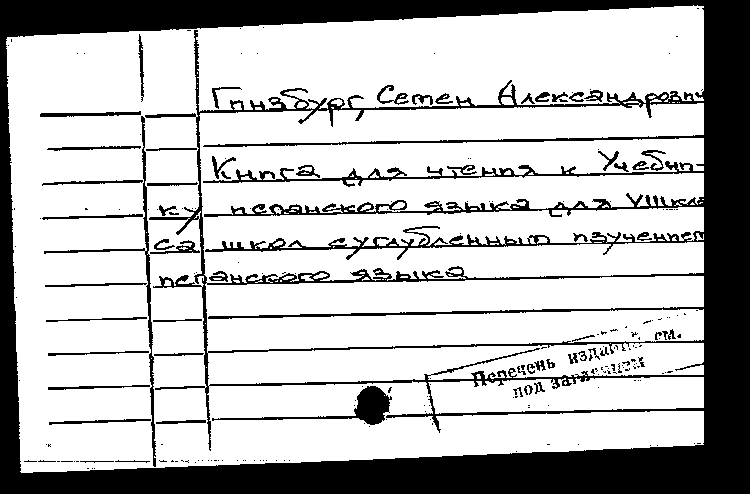 Гинзбург, Семен Александрович
Книга для чтения к Учебни-
ку испанского языка для VIII кла
са школ с углубленным изучением
испанского языка
Перечень изданий см.
под заглавием